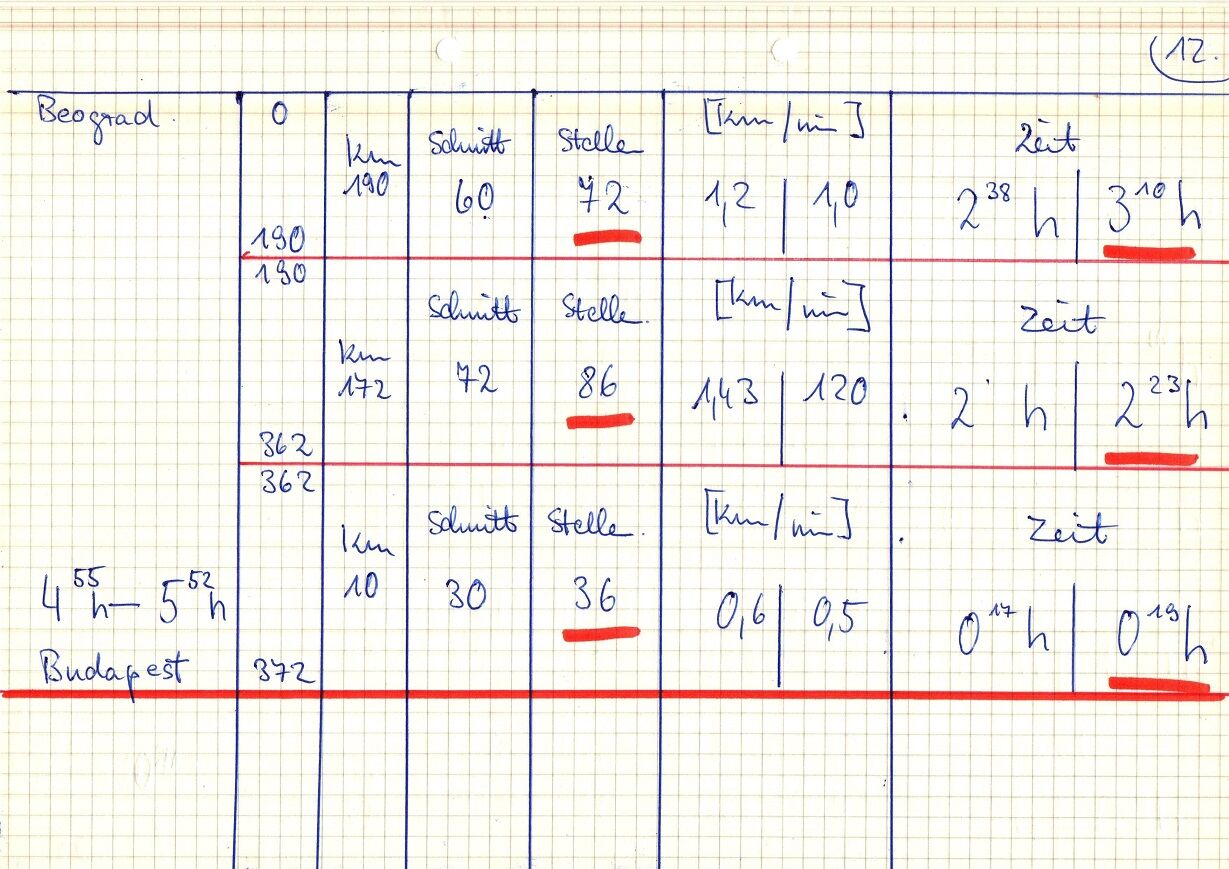 12.
Beograd. 0 km 190 Schnitt 60 Stelle 72 [km/min] 1,2 | 1,0 Zeit 2³⁸ h | 3¹⁰ h
190
190 km 172 Schnitt 72 Stelle. 86 [km/min] 1,43 | 120 Zeit 2 h | 2²³ h
362
362 km 10 Schnitt 30 Stelle. 36 [km/min] 0,6 | 0,5 Zeit 0¹⁷ h | 0¹⁹ h
4⁵⁵ h — 5⁵² h
Budapest 372